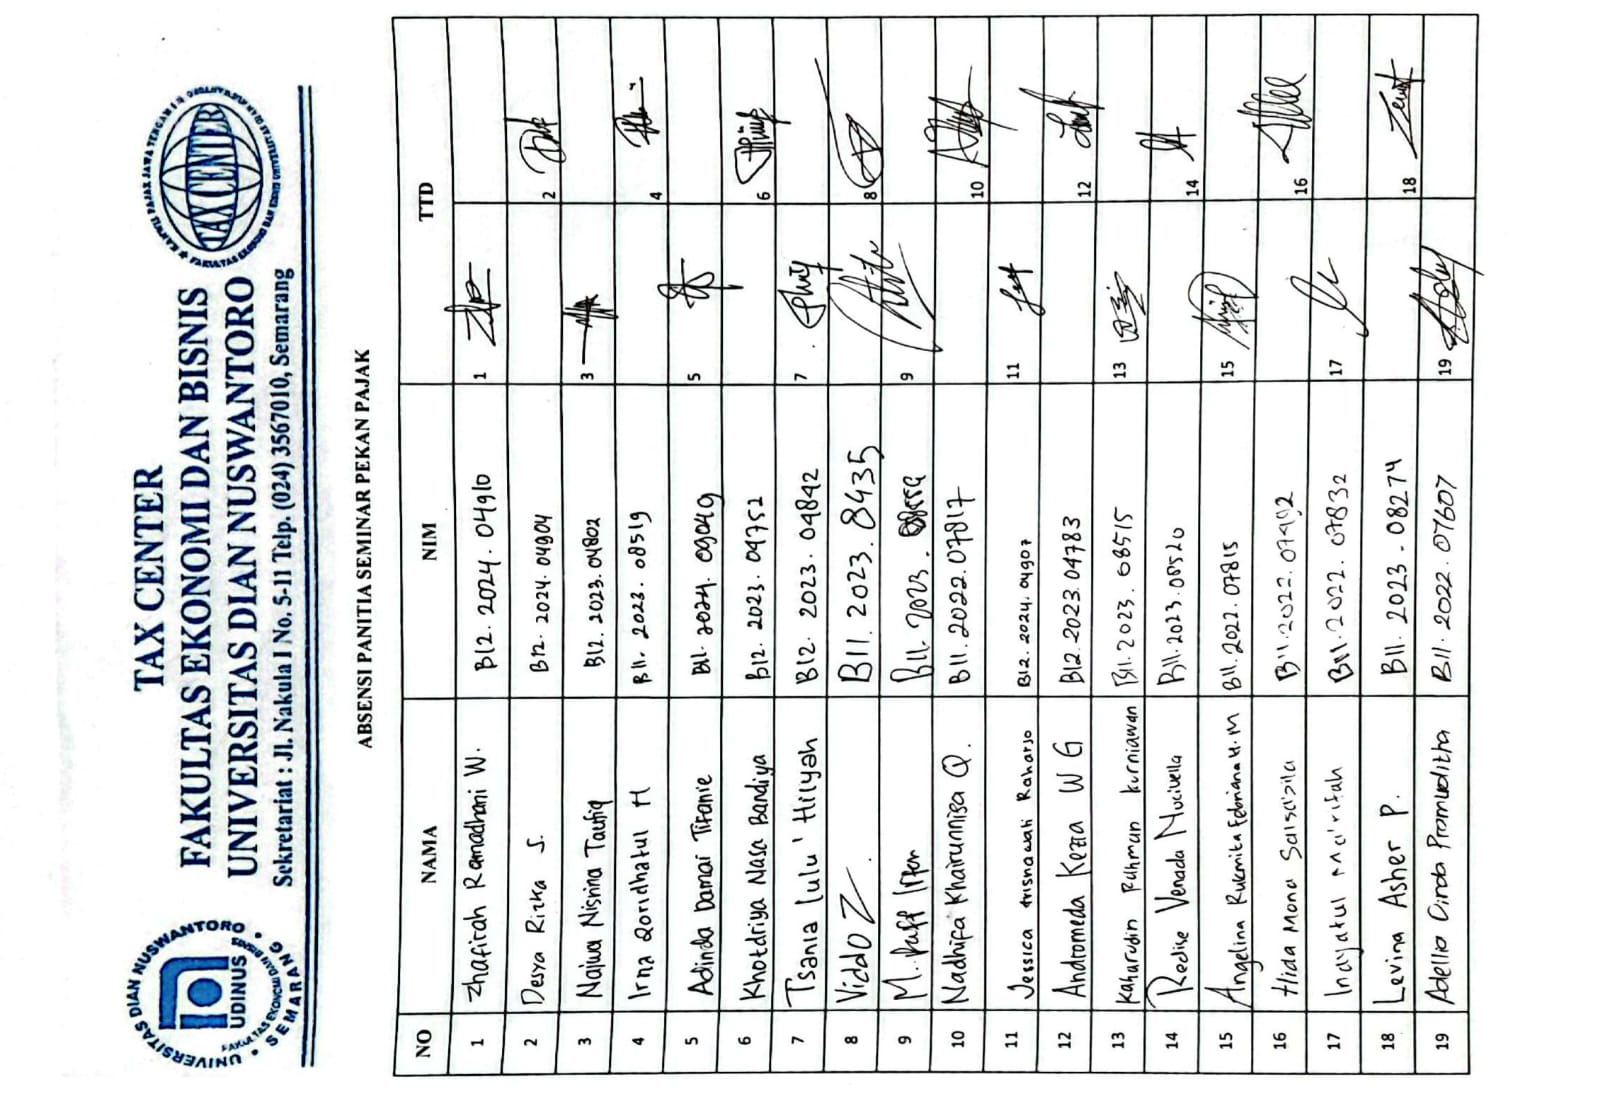 TAX CENTER
FAKULTAS EKONOMI DAN BISNIS
UNIVERSITAS DIAN NUSWANTORO
Sekretariat : Jl. Nakula I No. 5-11 Telp. (024) 3567010, Semarang
UNIVERSITAS DIAN NUSWANTORO
UDINUS
FAKULTAS EKONOMI DAN BISNIS
SEMARANG
TAX CENTER
ABSENSI PANITIA SEMINAR PEKAN PAJAK
NO NAMA NIM TTD
1 Zhafirah Ramadhani W. B12. 2024. 04910 1
2 Desya Rizka S. B12. 2024. 04904 2
3 Najwa Nisrina Taufiq B12. 2023. 04802 3
4 Irna Qoridhatul H B11. 2023. 08519 4
5 Adinda Damai Tifanie B11. 2024. 09049 5
6 Khotdriya Nasa Bandiya B12. 2023. 04752 6
7 Tsania Lulu' Hilyah B12 2023. 04842 7
8 Viddo Z. B11. 2023. 8435 8
9 M. B11. 2023. 9
10 Nadhifa Khairunnisa Q. B11. 2022. 07817 10
11 Jessica Trisnawati Raharso B12. 2024. 04907 11
12 Andromeda Kezia W G B12. 2023. 04783 12
13 Kaharudin Rahman Kurniawan B11. 2023. 08515 13
14 Venada B11. 2023. 08520 14
15 Angelina Rukmita Febriana H. M B11. 2022. 07815 15
16 Hida Mona Salsabila B11. 2022. 16
17 Inayatul B11. 2022. 07832 17
18 Levina Asher P. B11. 2023. 08274 18
19 Adellia Cinda Pramuditha B11. 2022. 07607 19